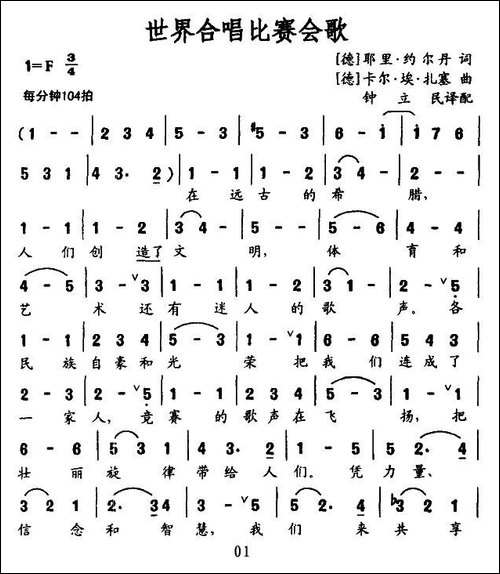 世界合唱比赛会歌
1=F 3/4
[德]耶里·约尔丹 词
[德]卡尔·埃·扎塞 曲
每分钟104拍
钟 立 民译配
( 1 - - | 2 3 4 | 5 - 3 | 5 - 3 | 6 - i | i 7 6 |
5 3 1 | 4 3· 2 ) | 1 - 1 | 1 - 2 | 3 4 - | 2 - - |
在 远 古 的 希 腊,
1 - 1 | 1 - 2 | 3 4 - | 5 - - | 5 - 6 | 4 - 4 |
人 们 创 造了 文 明, 体 育 和
4 - 5 | 3 - ∨3 | 1 - 1 | 1 - 2 | 3 4 1 | 2 - ∨5 |
艺 术 还 有 迷 人 的 歌 声。各
1 - 1 | 2 3 4 | 5 - 3 | 1 - ∨1 | 1 - 1 | 2 3 4 |
民 族 自 豪 和 光 荣 把 我 们 连 成 了
2 - 3 | 2 - ∨5 | 1 - 1 | 2 3 4 | 5 - 3 | 1 - ∨1 |
一 家 人, 竞 赛 的 歌 声 在 飞 扬, 把
6 - 6 | 5 3 1 | 4 3· 2 | 5 - 3 | 5 - 3 | 5 2· 4 |
壮 丽 旋 律 带 给 人 们。 凭 力 量、
3 2 1 | 2· 3 4 | 3 - ∨5 | 5 - 3 | 5 2· 4 | ♭3 2 1 |
信 念 和 智 慧, 我 们 来 共 享
01